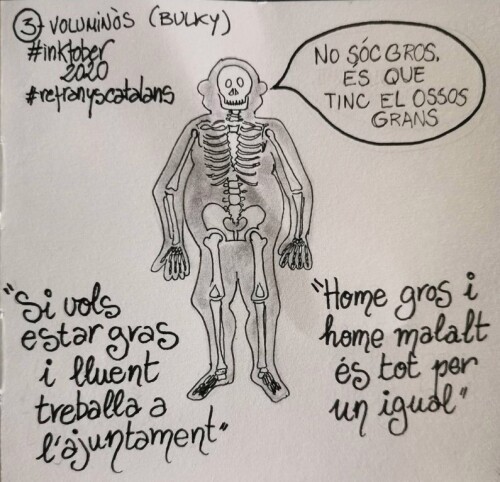 3 VOLUMINÒS (BULKY)
#inktober
2020
#refranyscatalans
NO SÓC GROS,
ES QUE
TINC EL OSSOS
GRANS
"Si vols
estar gras
i lluent
treballa a
l'ajuntament"
"Home gros i
home malalt
és tot per
un igual"